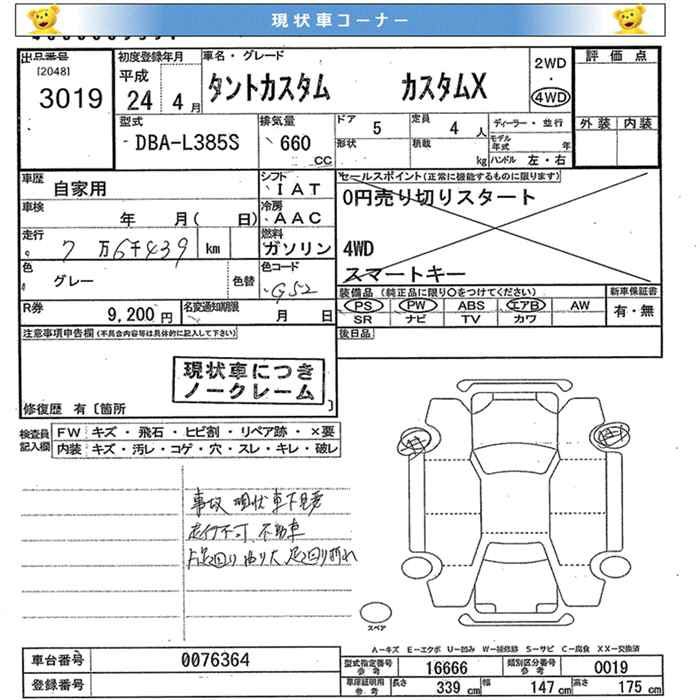 現状車コーナー
出品番号
[2048]
3019
初度登録年月
平成
24 4月
車名・グレード
タントカスタム カスタムX
2WD
・
4WD
評価点
外装 内装
型式
DBA-L385S
排気量
660
CC
ドア 5
定員 4 人
形状
積載 kg
ディーラー・並行
モデル年式 年
ハンドル 左・右
車歴
自家用
シフト
IAT
セールスポイント(正常に機能するものに限ります)
0円売り切りスタート
4WD
スマートキー
車検
年 月( 日)
冷房
AAC
走行
7万6千439 km
燃料
ガソリン
色
グレー
色替
色コード
G52
R券
9,200円
名変通知期限
月 日
装備品(純正品に限り○をつけてください)
PS PW ABS エアB AW
SR ナビ TV カワ
新車保証書
有・無
後日品
注意事項申告欄(不具合内容等は具体的に記入して下さい)
現状車につき
ノークレーム
修復歴 有〔箇所 〕
検査員
記入欄
FW キズ・飛石・ヒビ割・リペア跡・×要
内装 キズ・汚レ・コゲ・穴・スレ・キレ・破レ
事故 現状車下見要
走行不可 不動車
足回り曲り大 足回り折れ
スペア
A−キズ E−エクボ U−凹み W−補修跡 S−サビ C−腐食 XX−交換済
車台番号
0076364
登録番号
型式指定番号
参考
16666
類別区分番号
参考
0019
車庫証明用
参考
長さ 339 cm
幅 147 cm
高さ 175 cm